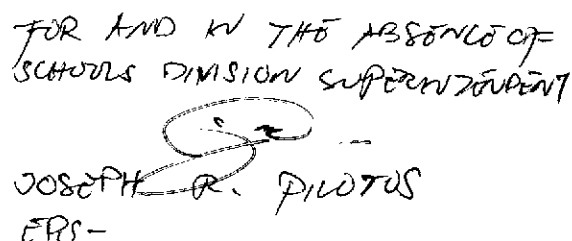 FOR AND IN THE ABSENCE OF
SCHOOLS DIVISION SUPERINTENDENT
JOSEPH R. PILOTOS
EPS-